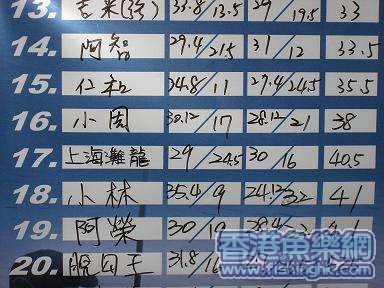 13. 吉米(強) 33.8/13.5 29/19.5 33
14. 阿智 29.4/21.5 31/12 33.5
15. 仁和 34.8/11 27.4/24.5 35.5
16. 小周 30.12/17 28.12/21 38
17. 上海灘龍 29/24.5 30/16 40.5
18. 小林 35.4/9 24.12/32 41
19. 阿榮 30/19 28.4/
20. 脫囚王 31.8/16
香港魚樂網
www.fishinghk.com